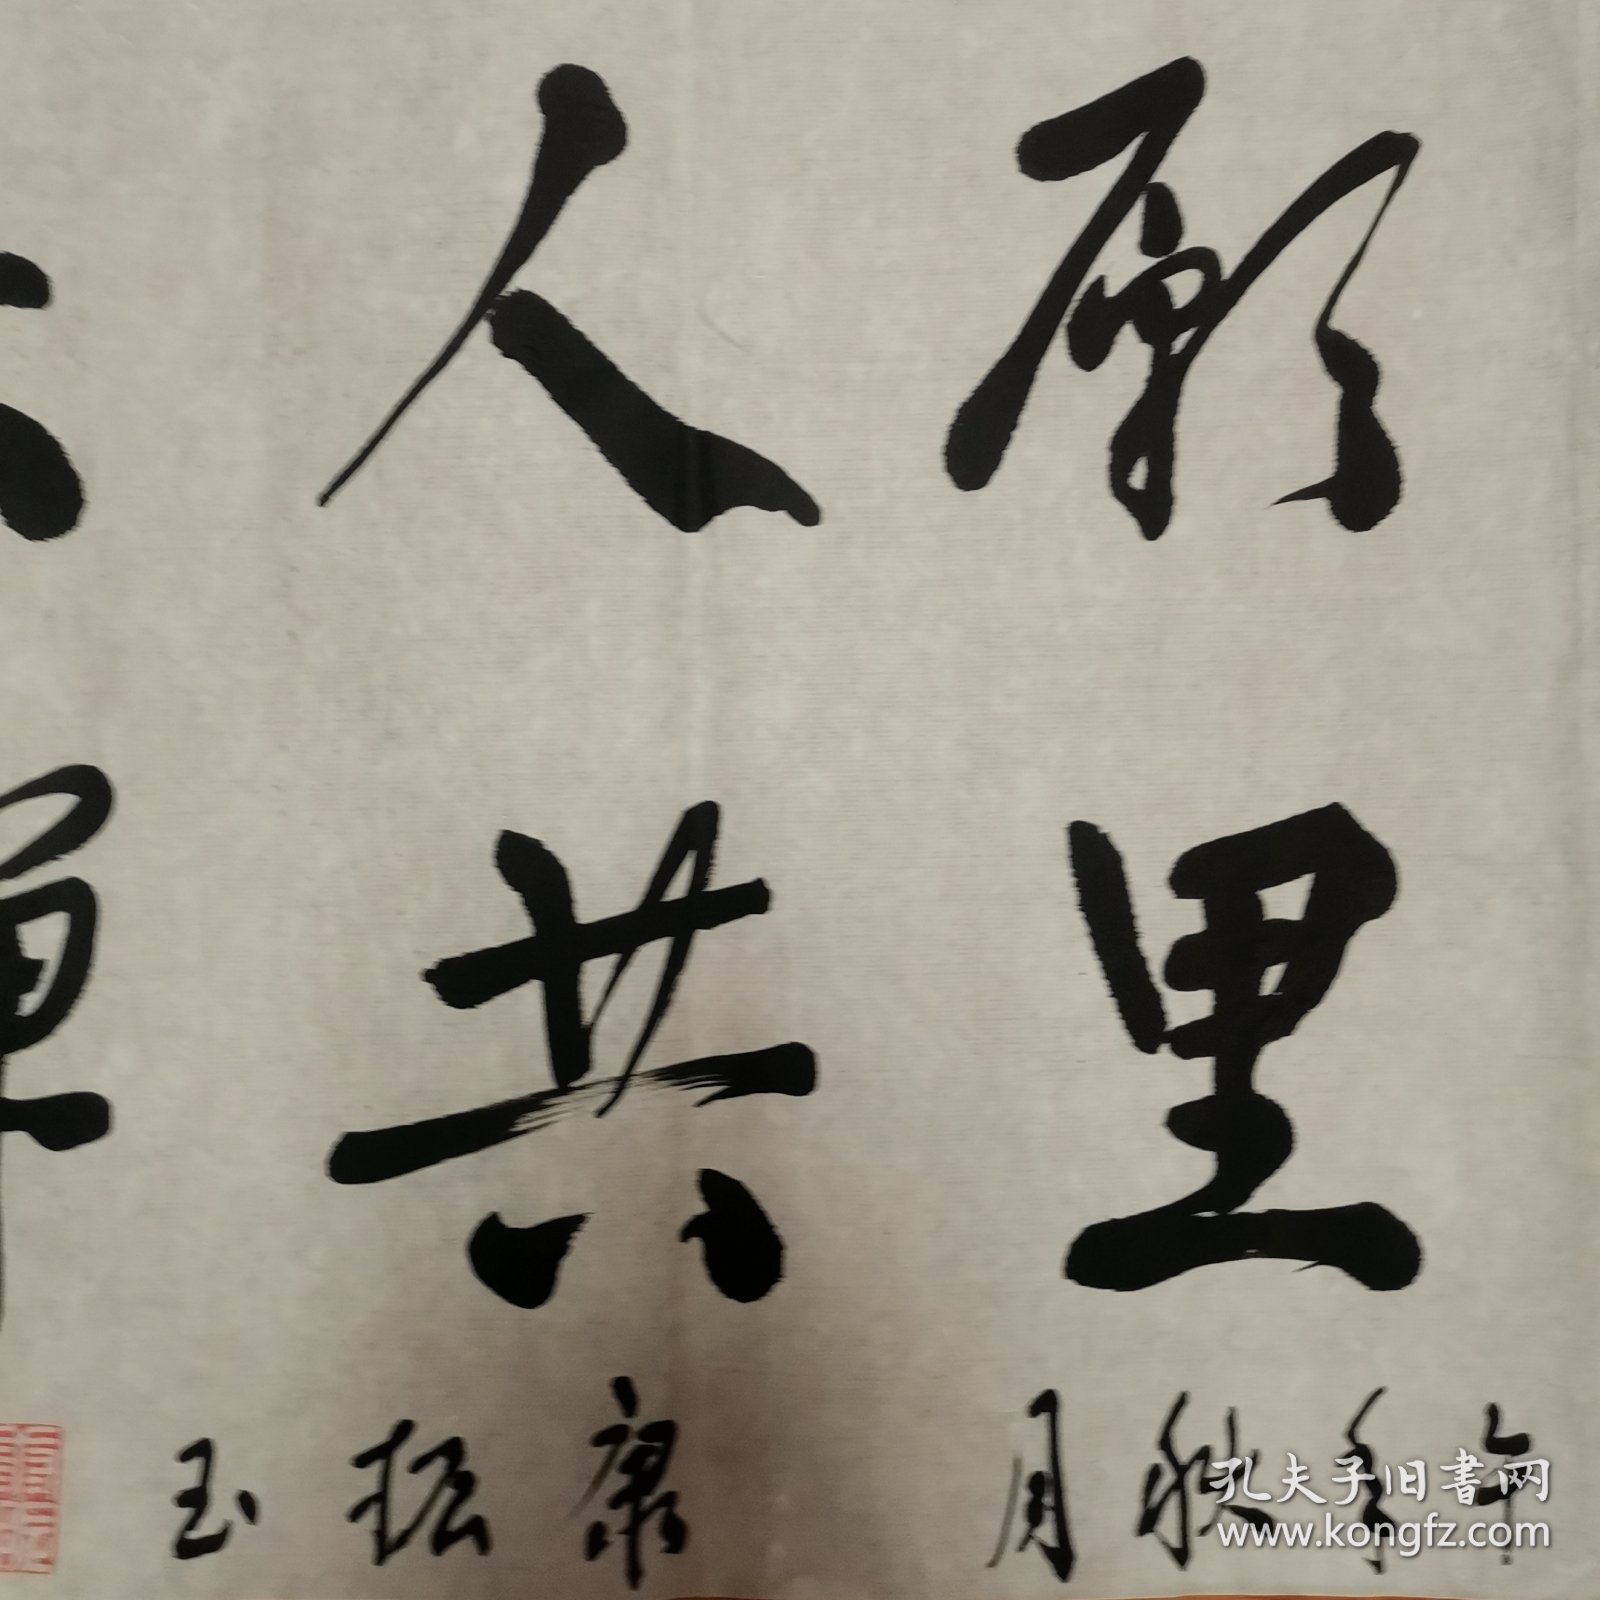 愿人
里共
午年秋月 康振玉
孔夫子旧书网
www.kongfz.com